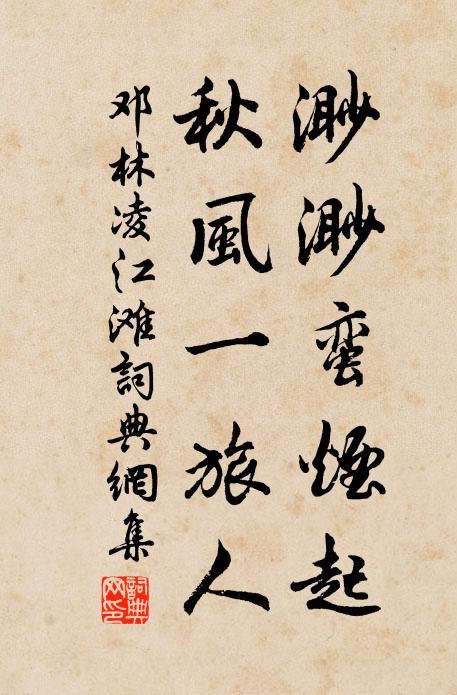 渺渺蛮煙起
秋風一旅人
邓林凌江滩詞典網集
詞典網印